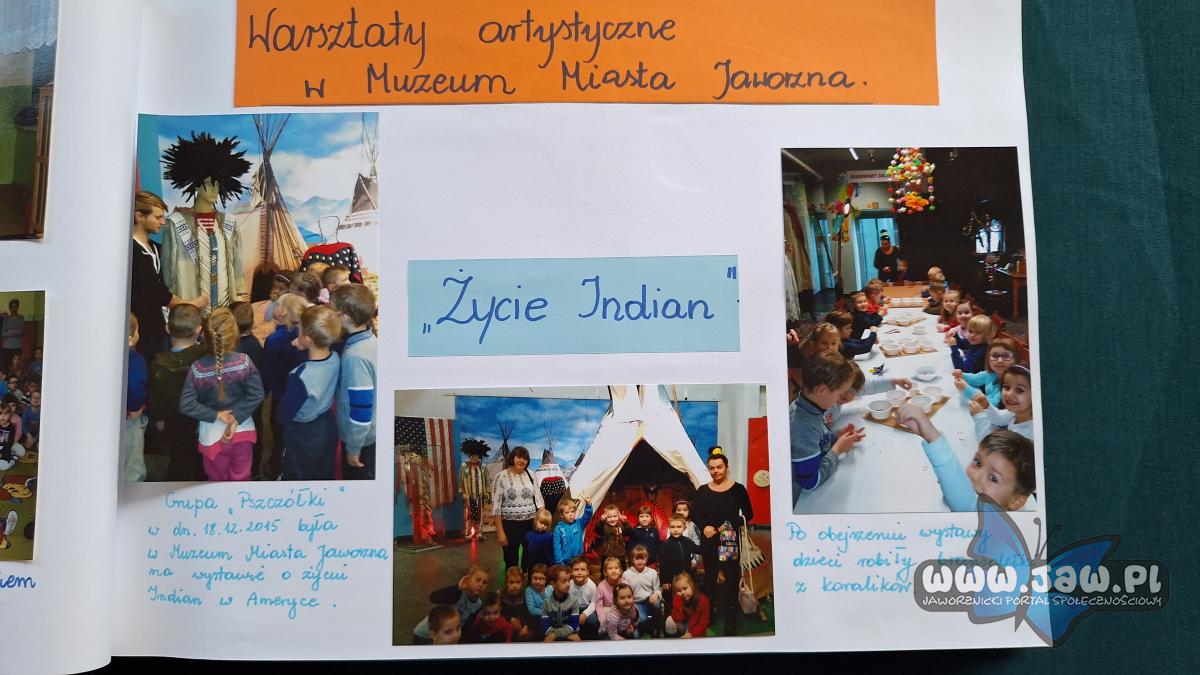 Warsztaty artystyczne
w Muzeum Miasta Jaworzna.
„Życie Indian"
Grupa „Pszczółki"
w dn. 18.12.2015 była
w Muzeum Miasta Jaworzna
na wystawie o życiu
Indian w Ameryce.
Po obejrzeniu wystawy
dzieci robiły
z koralików
www.jaw.pl
JAWORZNICKI PORTAL SPOŁECZNOŚCIOWY